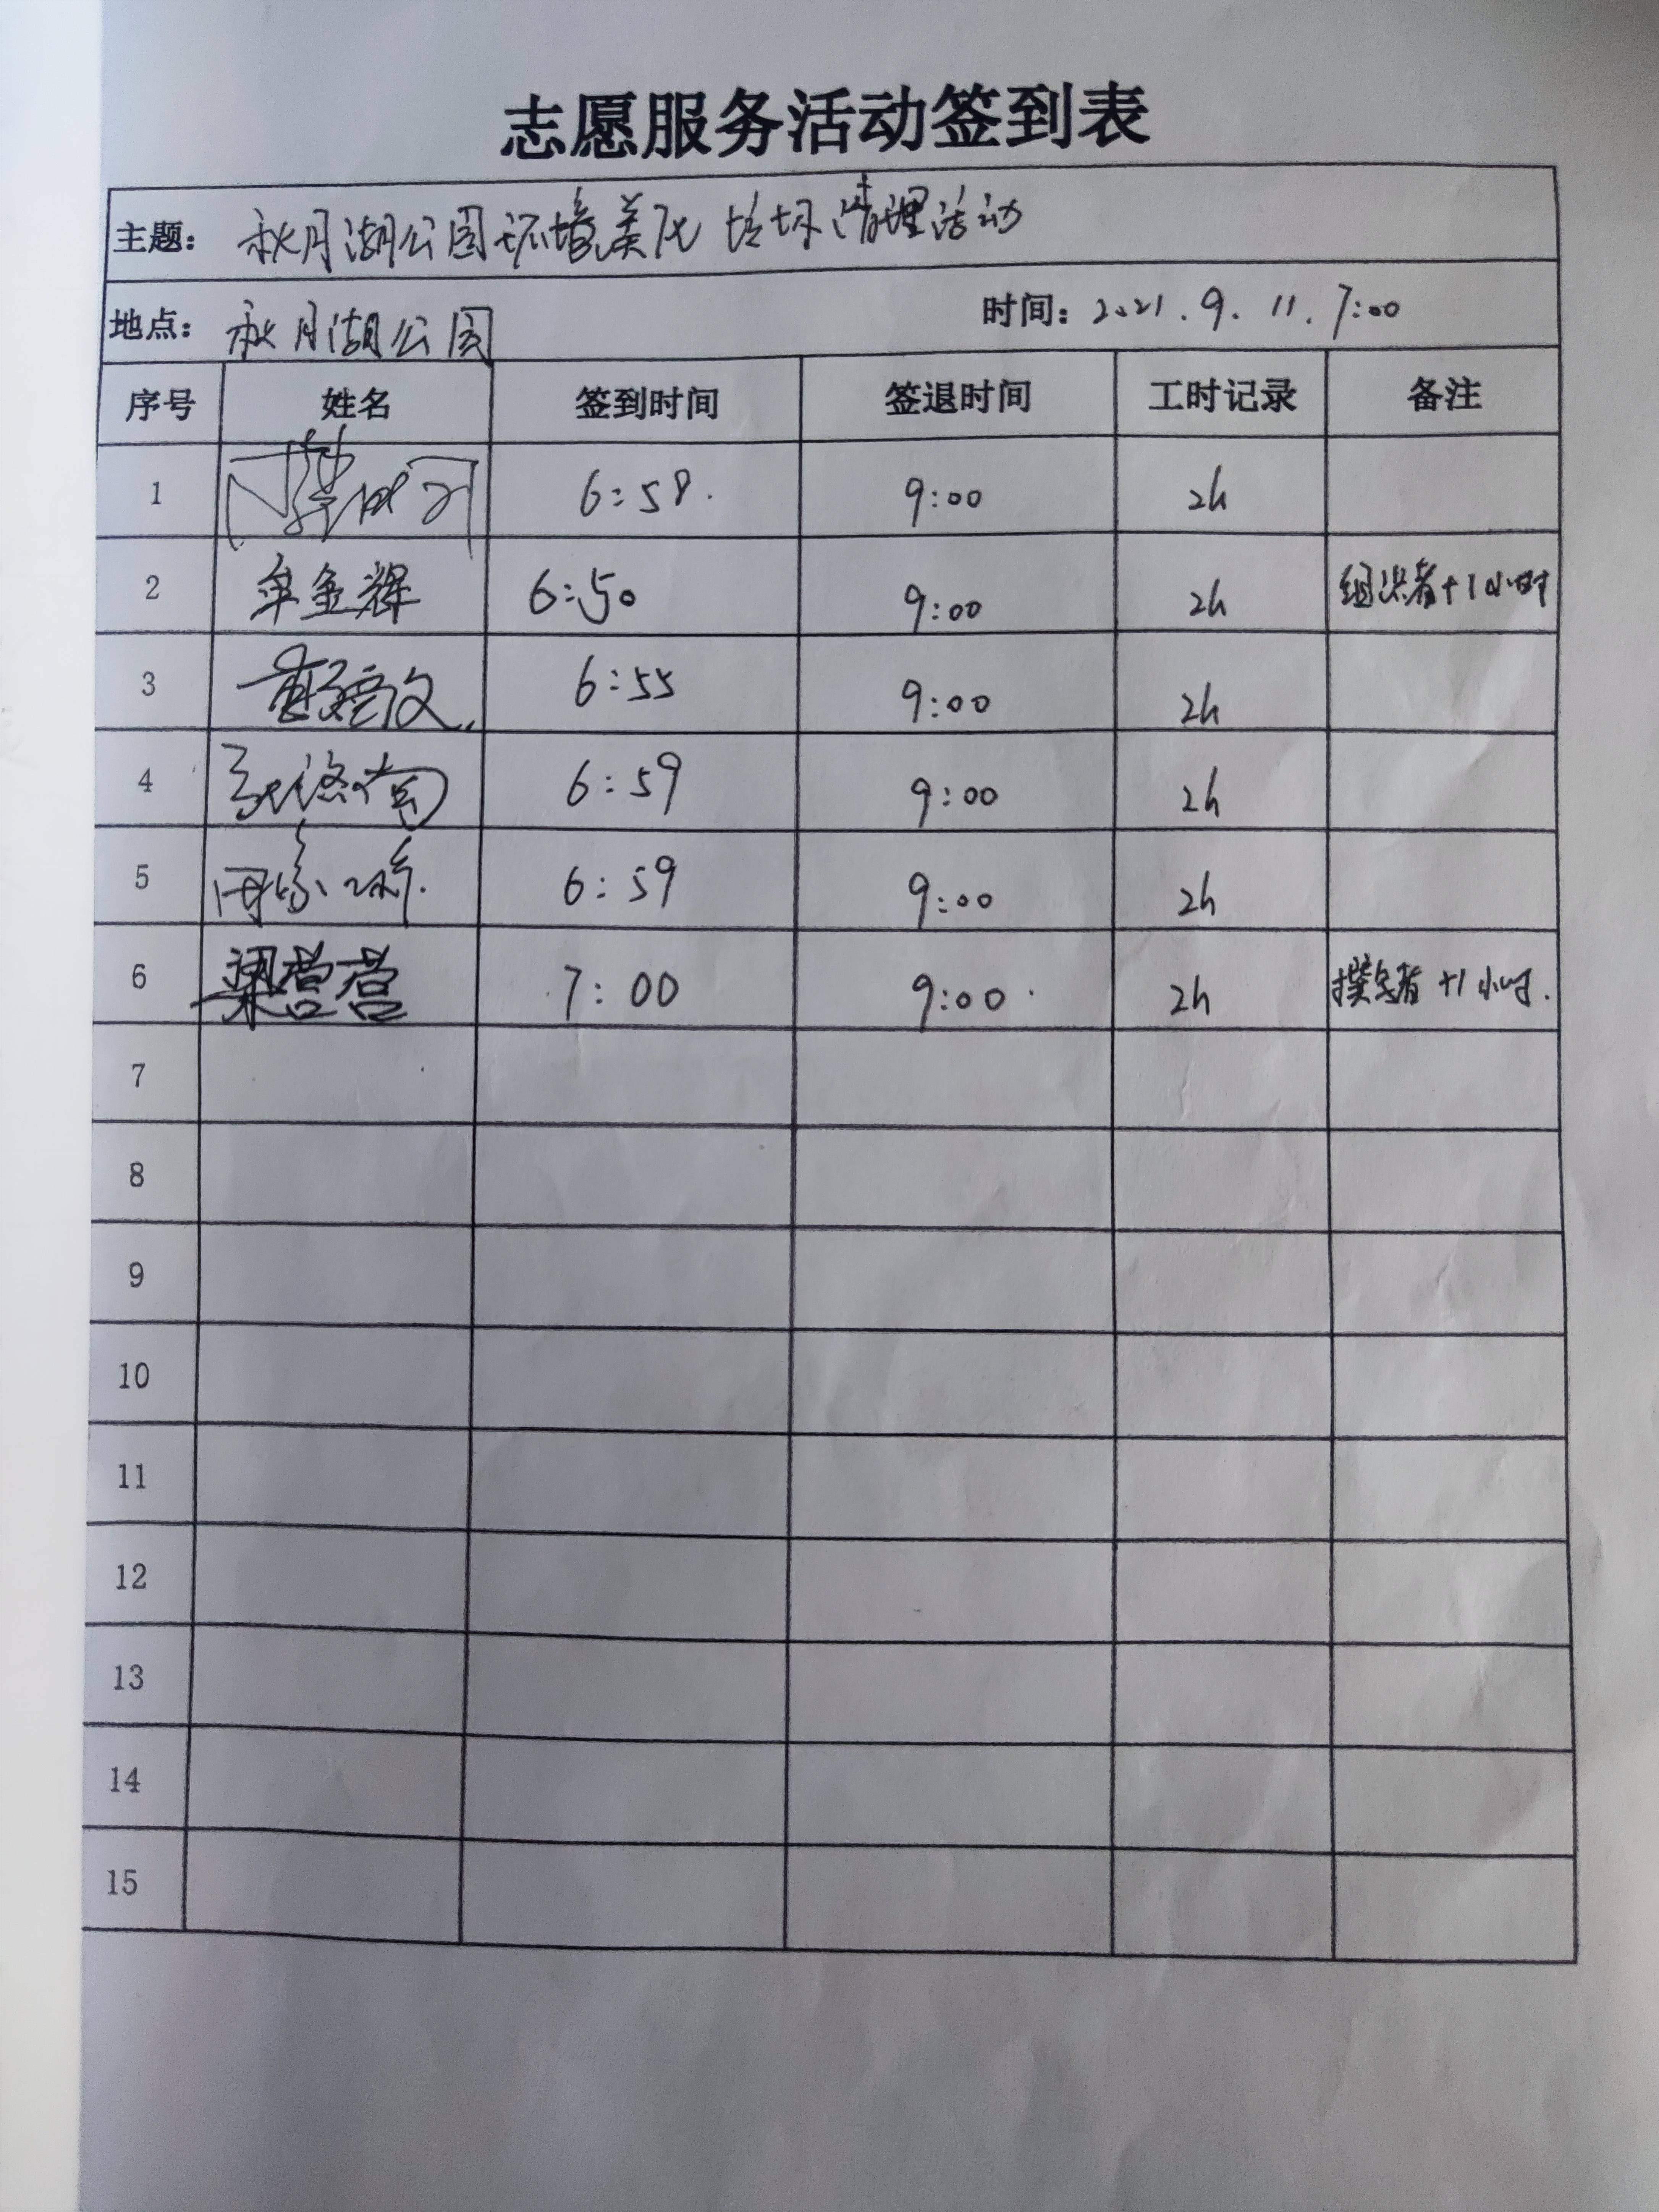 志愿服务活动签到表
主题： 秋月湖公园环境美化垃圾清理活动
地点： 秋月湖公园 时间：2021.9.11.7:00
序号 姓名 签到时间 签退时间 工时记录 备注
1 6:58. 9:00 2h
2 牟金辉 6:50 9:00 2h 组织者+1小时
3 6:55 9:00 2h
4 6:59 9:00 2h
5 6:59 9:00 2h
6 梁营营 7:00 9:00 2h 撰写者+1小时.
7
8
9
10
11
12
13
14
15